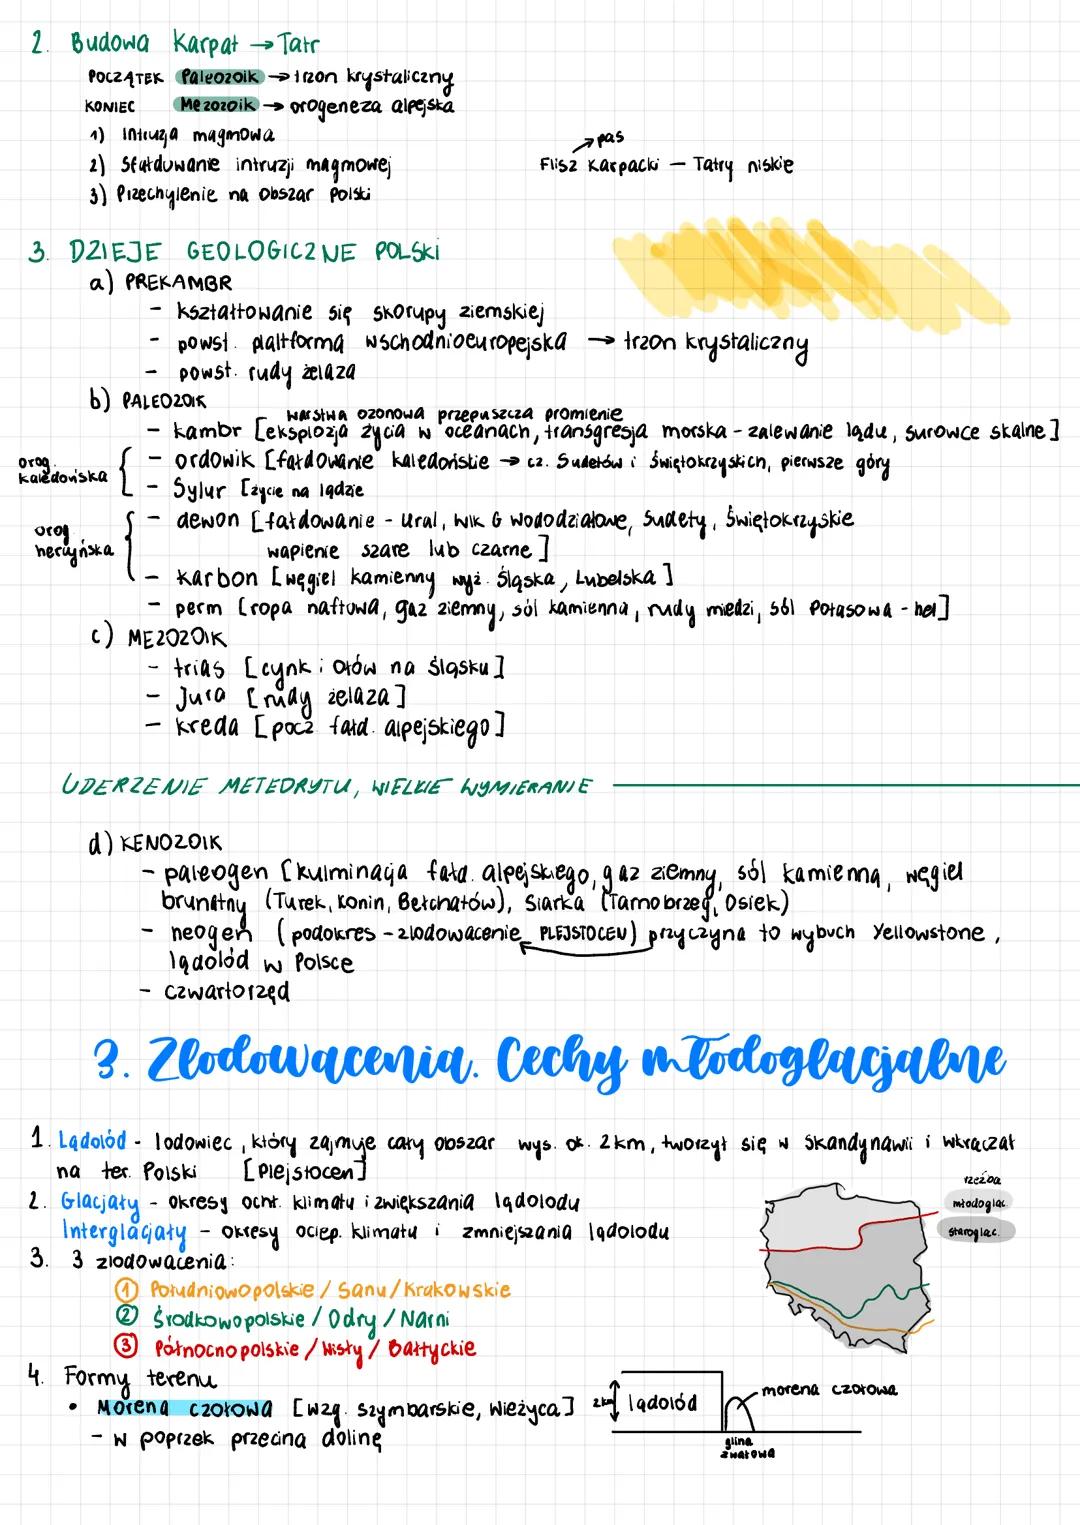 2. Budowa Karpat → Tatr
POCZĄTEK Paleozoik → trzon krystaliczny
KONIEC Mezozoik → orogeneza alpejska
1) Intruzja magmowa
2) Sfałdowanie intruzji magmowej
3) Przechylenie na obszar Polski
→ pas
Flisz Karpacki – Tatry niskie
3. DZIEJE GEOLOGICZNE POLSKI
a) PREKAMBR
- kształtowanie się skorupy ziemskiej
- powst. platforma wschodnioeuropejska → trzon krystaliczny
- powst. rudy żelaza
b) PALEOZOIK
warstwa ozonowa przepuszcza promienie
- kambr [eksplozja życia w oceanach, transgresja morska - zalewanie lądu, surowce skalne]
orog. kaledońska
- ordowik [fałdowanie kaledońskie → cz. Sudetów i Świętokrzyskich, pierwsze góry
- Sylur [życie na lądzie
orog. hercyńska
- dewon [fałdowanie - Ural, Wlk G Wododziałowe, Sudety, Świętokrzyskie
wapienie szare lub czarne]
- karbon [węgiel kamienny wyż. Śląska, Lubelska]
- perm [ropa naftowa, gaz ziemny, sól kamienna, rudy miedzi, sól potasowa - hel]
c) MEZOZOIK
- trias [cynk i ołów na Śląsku]
- Jura [rudy żelaza]
- kreda [pocz fałd. alpejskiego]
UDERZENIE METEORYTU, WIELKIE WYMIERANIE
d) KENOZOIK
- paleogen [kulminacja fałd. alpejskiego, gaz ziemny, sól kamienna, węgiel
brunatny (Turek, Konin, Bełchatów), Siarka (Tarnobrzeg, Osiek)
- neogen (podokres - zlodowacenie PLEJSTOCEN) przyczyna to wybuch Yellowstone,
lądolód w Polsce
- czwartorzęd
3. Zlodowacenia. Cechy młodoglacjalne
1. Lądolód - lodowiec, który zajmuje cały obszar wys. ok. 2km, tworzył się w Skandynawii i wkraczał
na ter. Polski [Plejstocen]
2. Glacjały - okresy ochł. klimatu i zwiększania lądolodu
Interglacjały - okresy ociep. klimatu i zmniejszania lądolodu
rzeźba
młodoglac.
staroglac.
3. 3 zlodowacenia:
① Południowopolskie / Sanu / Krakowskie
② Środkowopolskie / Odry / Narni
③ Północnopolskie / Wisły / Bałtyckie
4. Formy terenu
• Morena czołowa [wzg. szymbarskie, wieżyca]
- w poprzek przecina dolinę
2km
lądolód
morena czołowa
glina
zwałowa